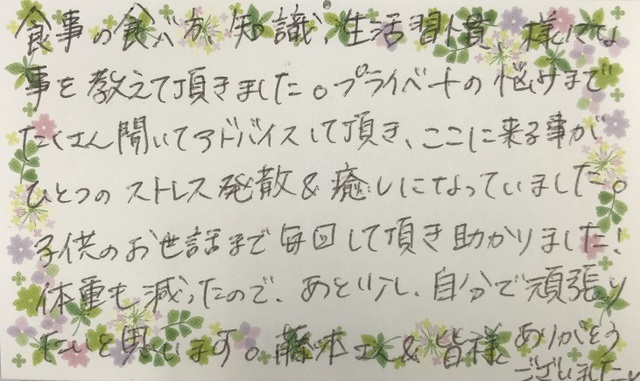 食事の食べ方、知識、生活習慣、様々な
事を教えて頂きました。プライベートの悩みまで
たくさん聞いてアドバイスして頂き、ここに来る事が
ひとつのストレス発散&癒しになっていました。
子供のお世話まで毎回して頂き助かりました!
体重も減ったので、あと少し、自分で頑張り
たいと思います。藤本さん&皆様ありがとう
ございました